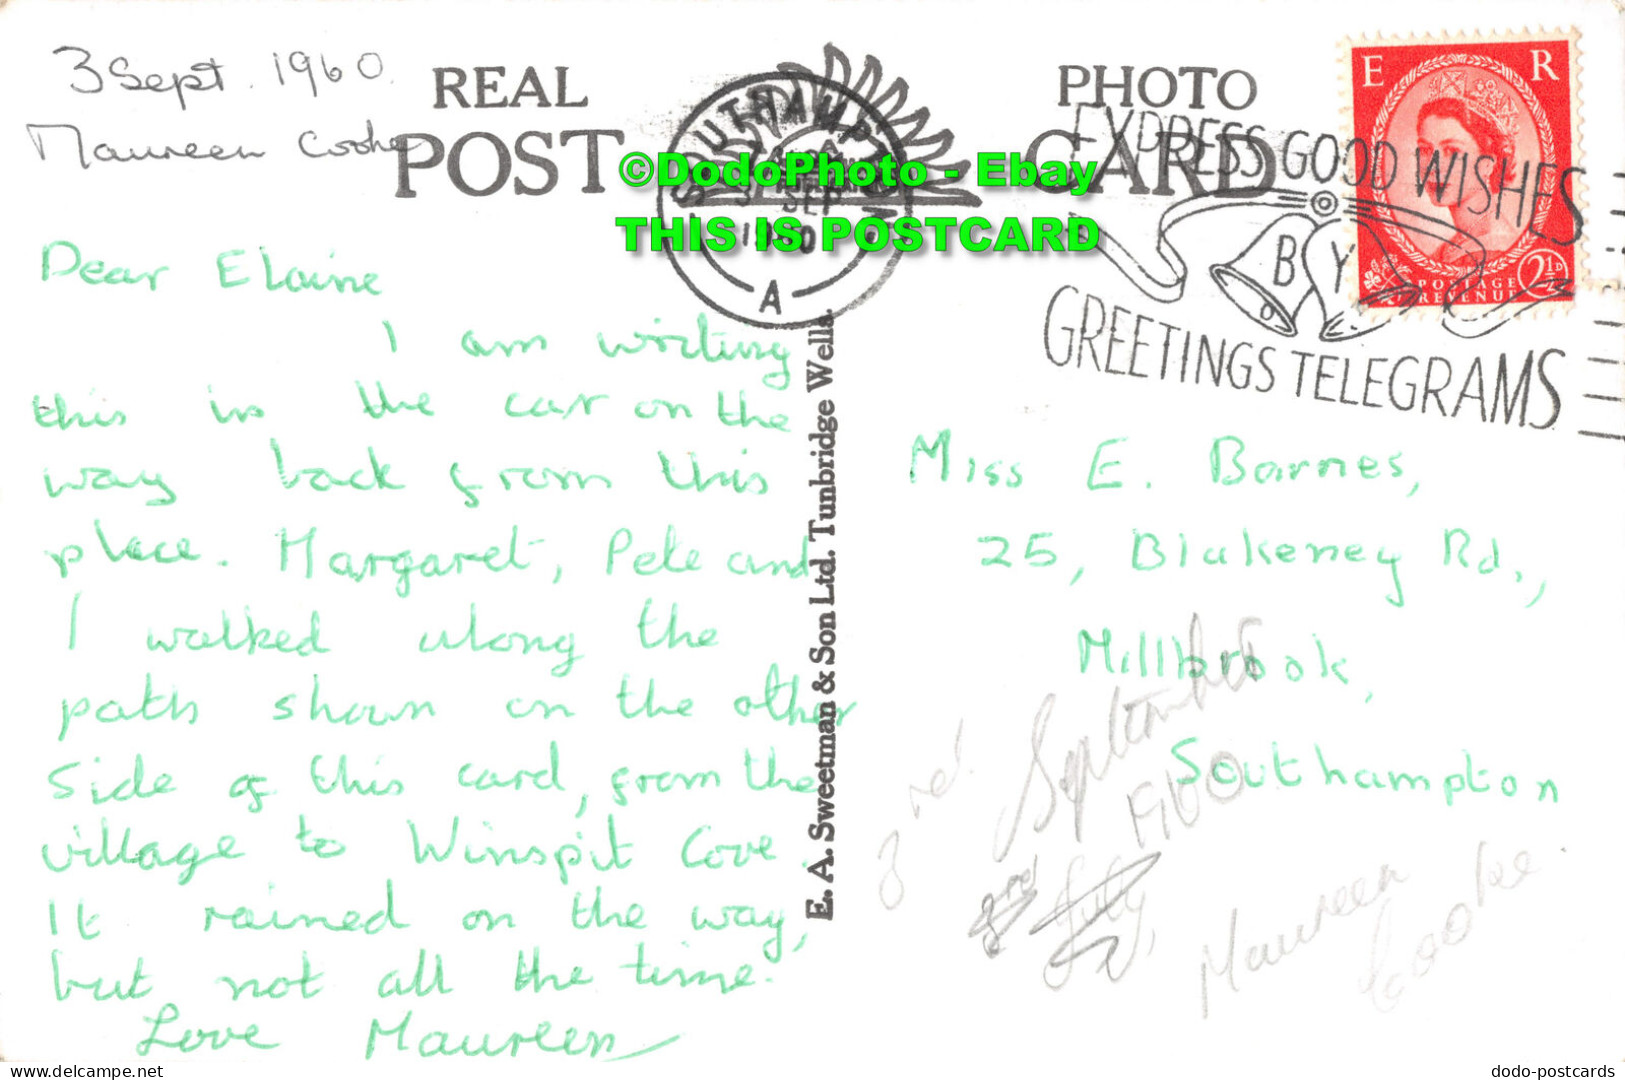 3 Sept. 1960.
Maureen Cooke
REAL PHOTO
POST CARD
SOUTHAMPTON
SEP
A
EXPRESS GOOD WISHES
BY
GREETINGS TELEGRAMS
E R
POSTAGE
REVENUE
2½D
©DodoPhoto - Ebay
THIS IS POSTCARD
Dear Elaine
I am writing
this in the car on the
way back from this
place. Margaret, Pete and
I walked along the
path shown on the other
side of this card, from the
village to Winspit Cove.
It rained on the way,
but not all the time.
Love Maureen
E. A. Sweetman & Son Ltd. Tunbridge Wells.
Miss E. Barnes,
25, Blakeney Rd.,
Millbrook,
Southampton
3rd September
1960
3rd July
Maureen
Cooke.
delcampe.net
dodo-postcards